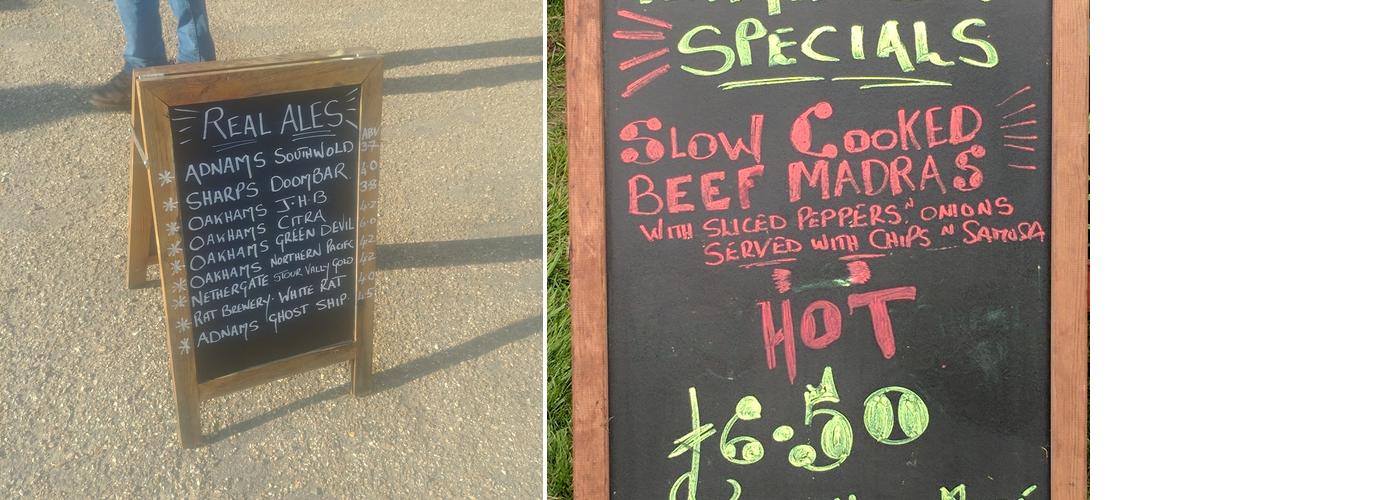 REAL ALES
ABV
ADNAMS SOUTHWOLD 3.7
SHARPS DOOMBAR 4.0
OAKHAMS J.H.B 3.8
OAKHAMS CITRA 4.2
OAKHAMS GREEN DEVIL 6.0
OAKHAMS NORTHERN PACIFIC 4.2
NETHERGATE STOUR VALLY GOLD 4.2
RAT BREWERY. WHITE RAT 4.0
ADNAMS GHOST SHIP. 4.5
SPECIALS
SLOW COOKED
BEEF MADRAS
WITH SLICED PEPPERS N ONIONS
SERVED WITH CHIPS N SAMOSA
HOT
£6.50